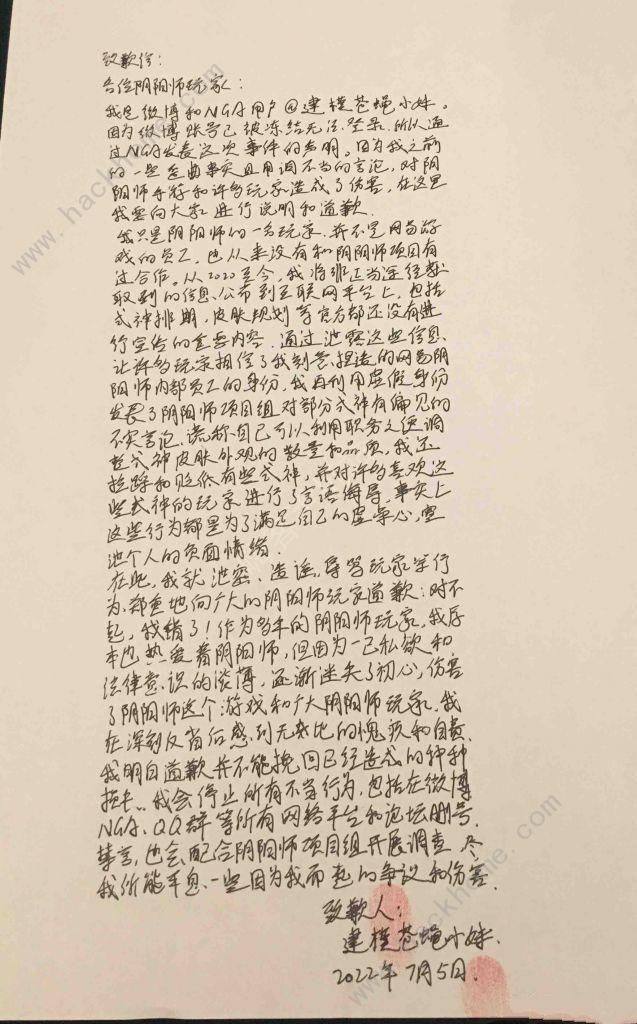 致歉信：
各位阴阳师玩家：
我是微博和NGA用户@建模苍蝇小妹。
因为微博账号已被冻结无法登录，所以通
过NGA发表这次事件的声明。因为我之前
的一些歪曲事实且用词不当的言论，对阴
阳师手游和许多玩家造成了伤害，在这里
我要向大家进行说明和道歉.
我只是阴阳师的一名玩家，并不是网易游
戏的员工，也从来没有和阴阳师项目有
过合作。从2020至今，我将非正当途径获
取到的信息公布到互联网平台上，包括
式神排期，皮肤规划等官方都还没有进
行宣传的重要内容，通过泄露这些信息，
让许多玩家相信了我刻意捏造的网易阴
阳师内部员工的身份，我再利用虚假身份
发表了阴阳师项目组对部分式神有偏见的
不实言论，谎称自己可以利用职务之便调
整式神皮肤外观的数量和品质，我还
拉踩和贬低有些式神，并对许多喜欢这
些式神的玩家进行了言语侮辱，事实上
这些行为都是为了满足自己的虚荣心，宣
泄个人的负面情绪.
在此，我就泄密、造谣、辱骂玩家等行
为，郑重地向广大的阴阳师玩家道歉：对不
起，我错了！作为多年的阴阳师玩家，我原
本也热爱着阴阳师，但因为一己私欲和
法律意识的淡薄，逐渐迷失了初心，伤害
了阴阳师这个游戏和广大阴阳师玩家，我
在深刻反省后感到无比的愧疚和自责.
我明白道歉并不能挽回已经造成的种种
损失，我会停止所有不当行为，包括在微博
NGA、QQ群等所有网络平台和论坛删号，
禁言，也会配合阴阳师项目组开展调查，尽
我所能平息一些因为我而起的争议和伤害.
致歉人：
建模苍蝇小妹.
2022年7月5日.
www.hackhome.com
www.hackhome.com